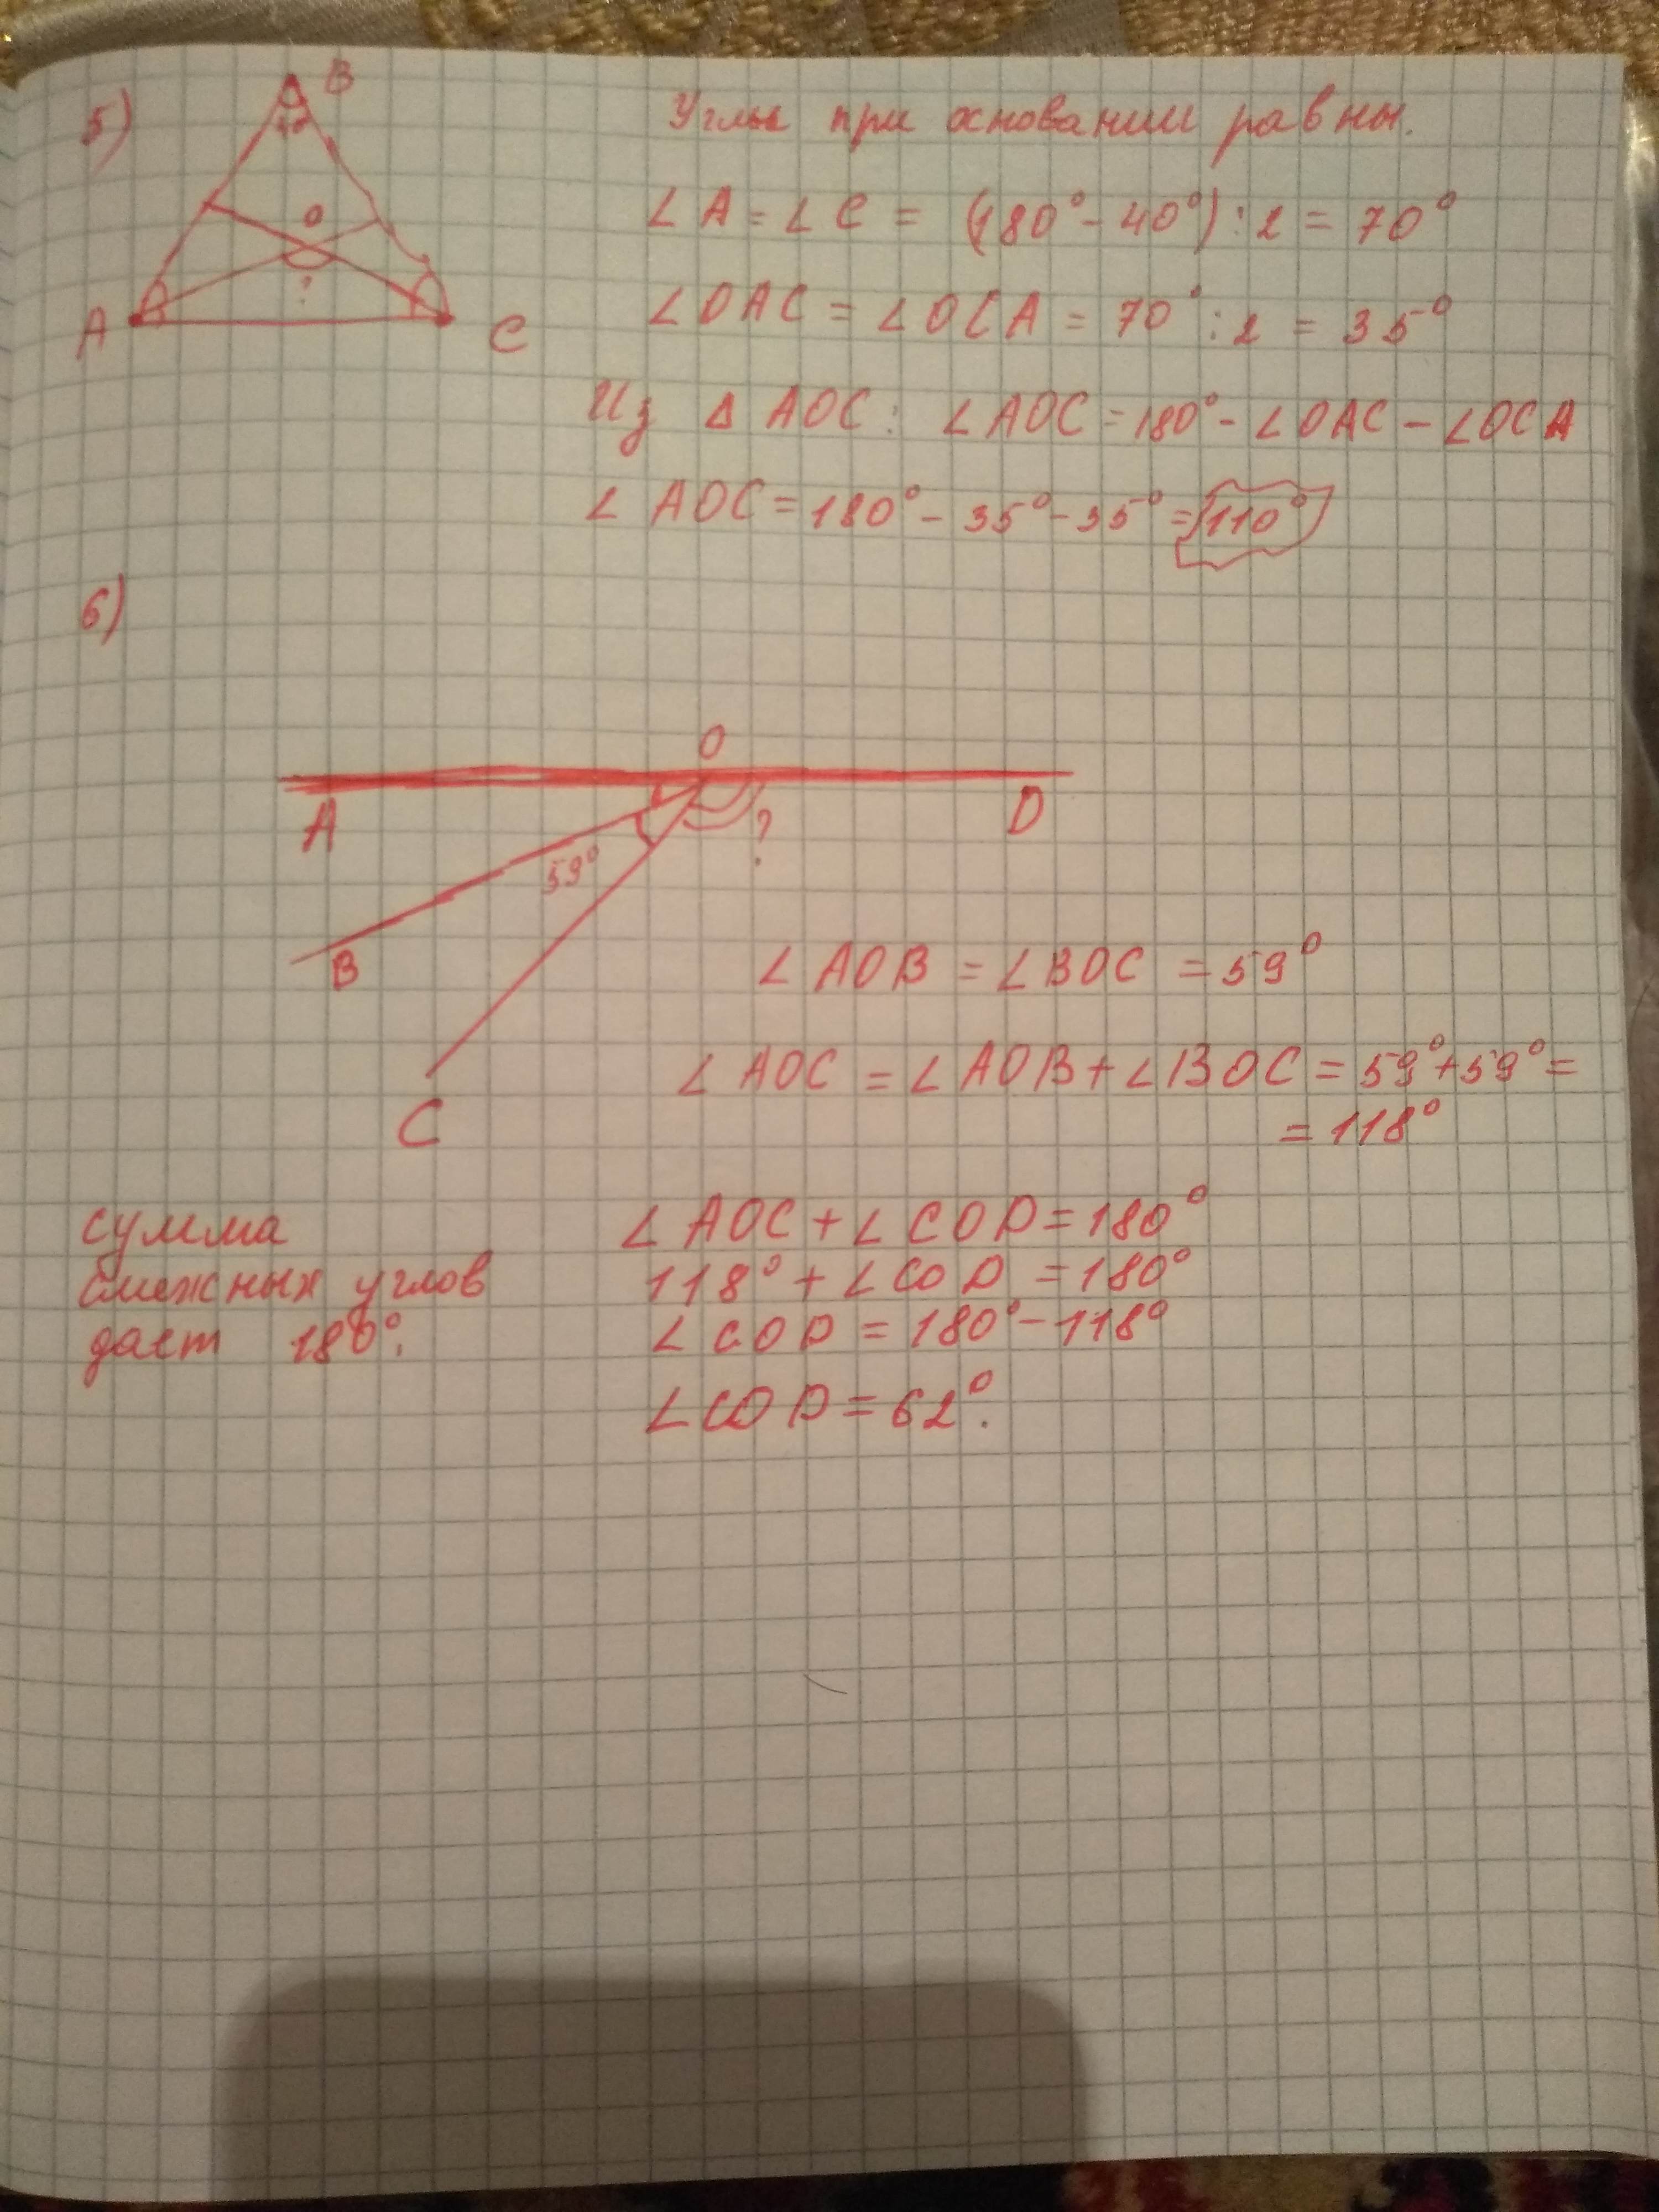 5)
B
40
O
?
A
C
Углы при основании равны.
∠A = ∠C = (180° - 40°) : 2 = 70°
∠OAC = ∠OCA = 70° : 2 = 35°
Из ΔAOC: ∠AOC = 180° - ∠OAC - ∠OCA
∠AOC = 180° - 35° - 35° = 110°
6)
O
A
D
?
59°
B
C
∠AOB = ∠BOC = 59°
∠AOC = ∠AOB + ∠BOC = 59° + 59° =
= 118°
сумма
смежных углов
даст 180°.
∠AOC + ∠COD = 180°
118° + ∠COD = 180°
∠COD = 180° - 118°
∠COD = 62°.